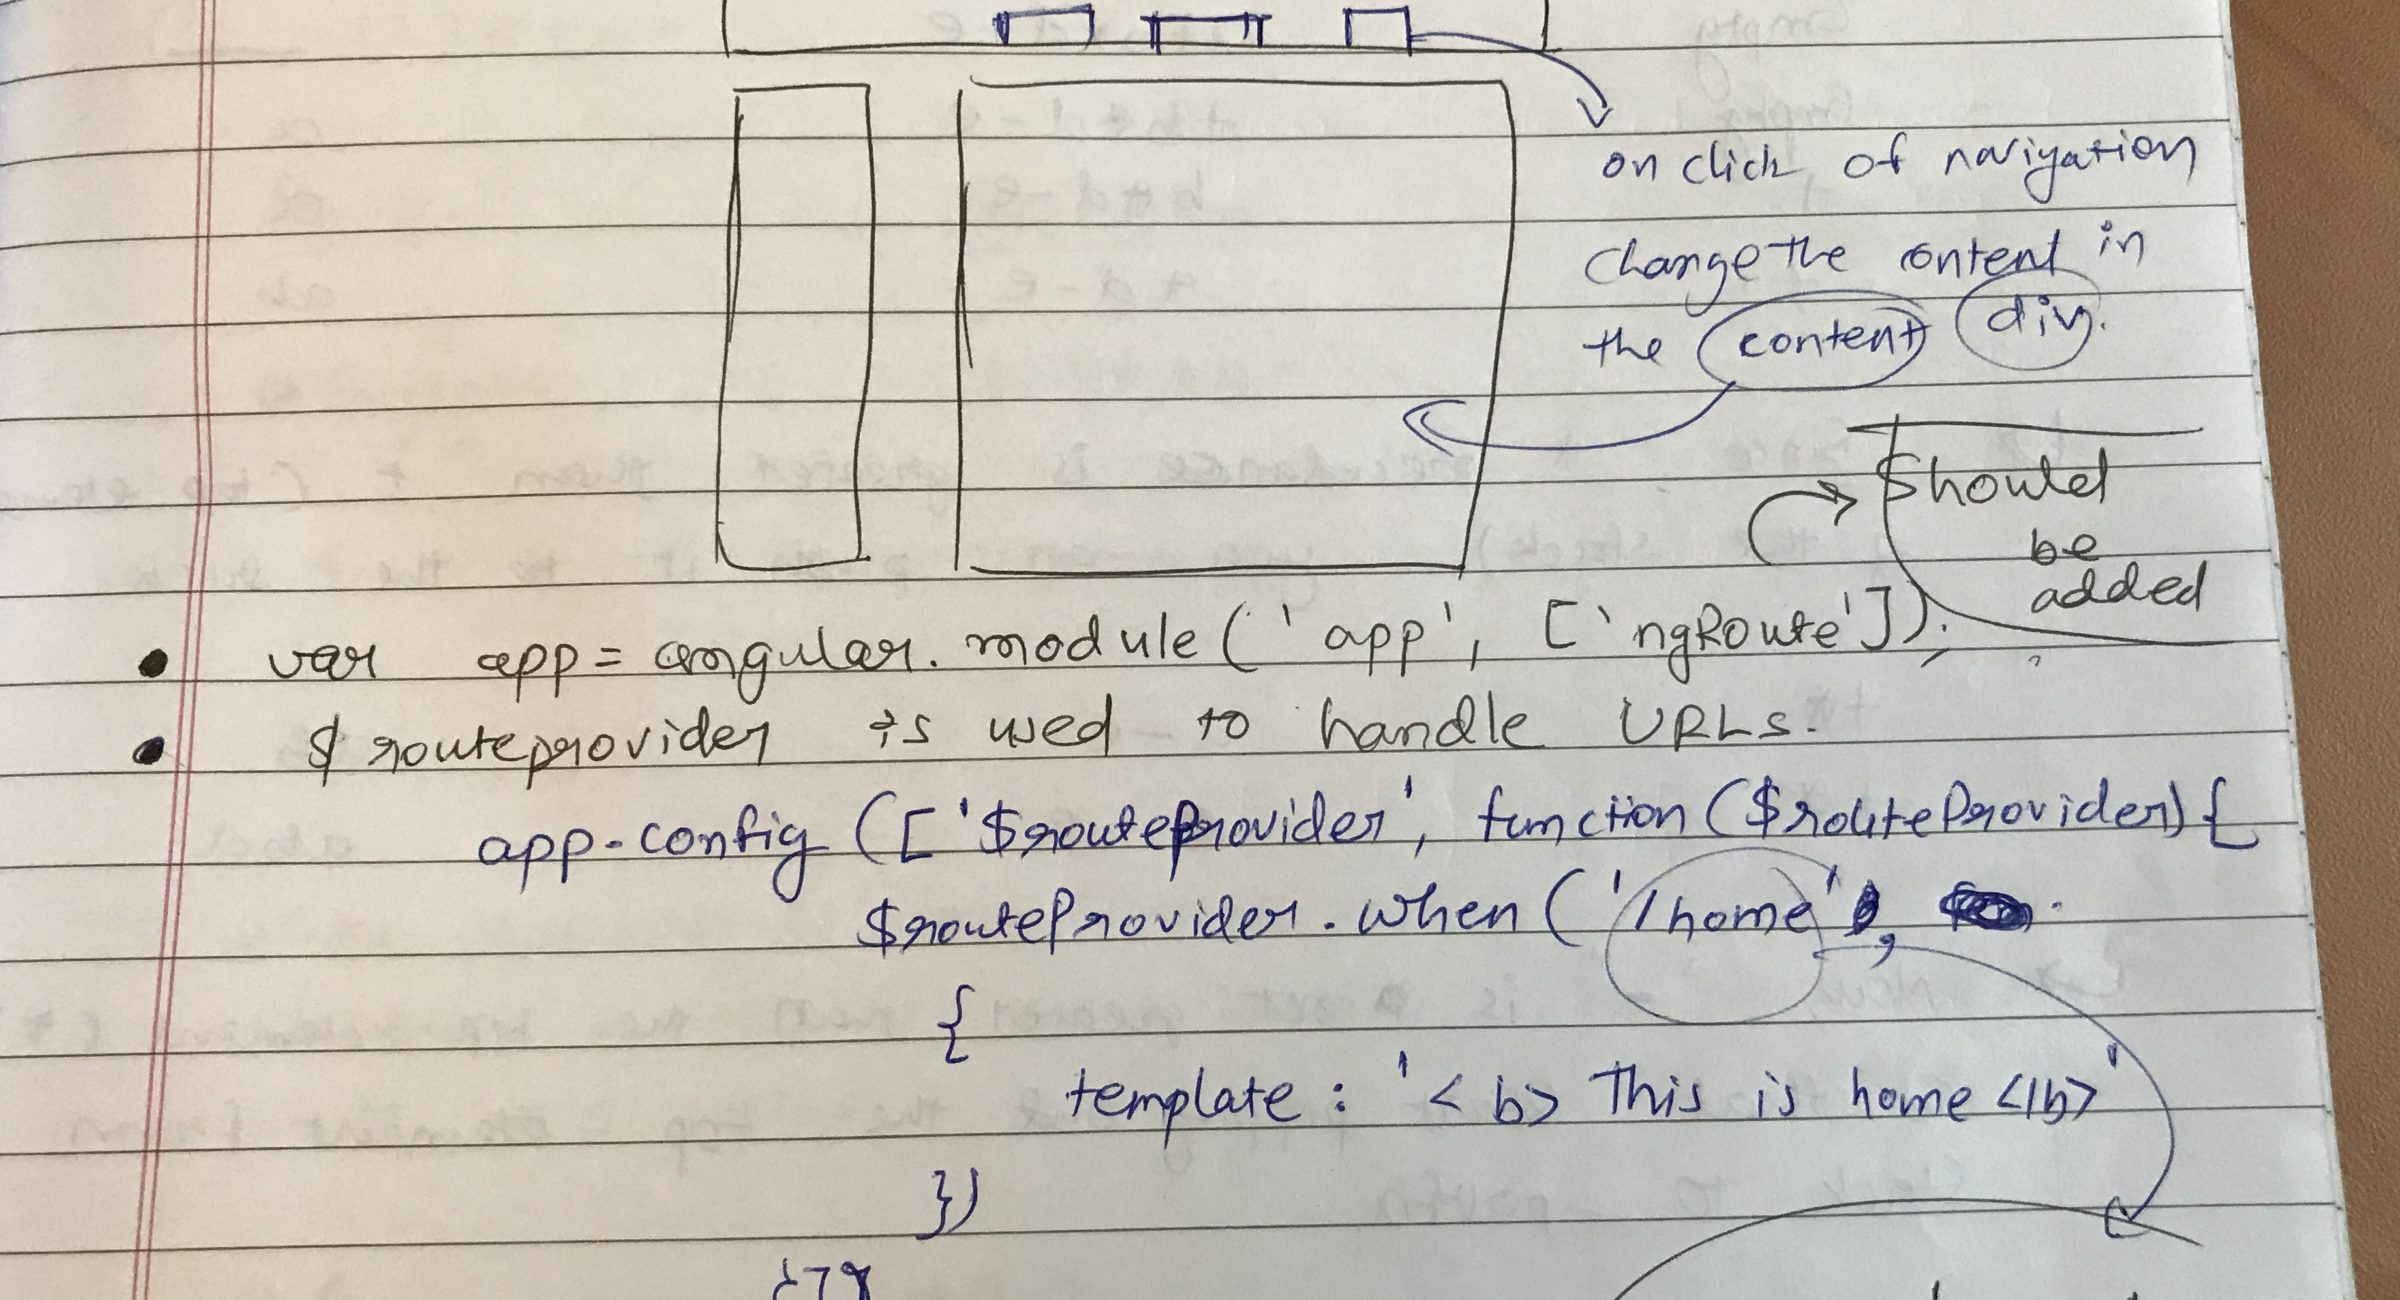 on click of navigation
change the content in
the content div.
Should
be
added
• var app = angular.module('app', ['ngRoute']);
• $routeprovider is used to handle URLs.
app.config(['$routeProvider', function($routeProvider){
$routeProvider.when('/home',
{
template: '<b> This is home </b>'
})
}])